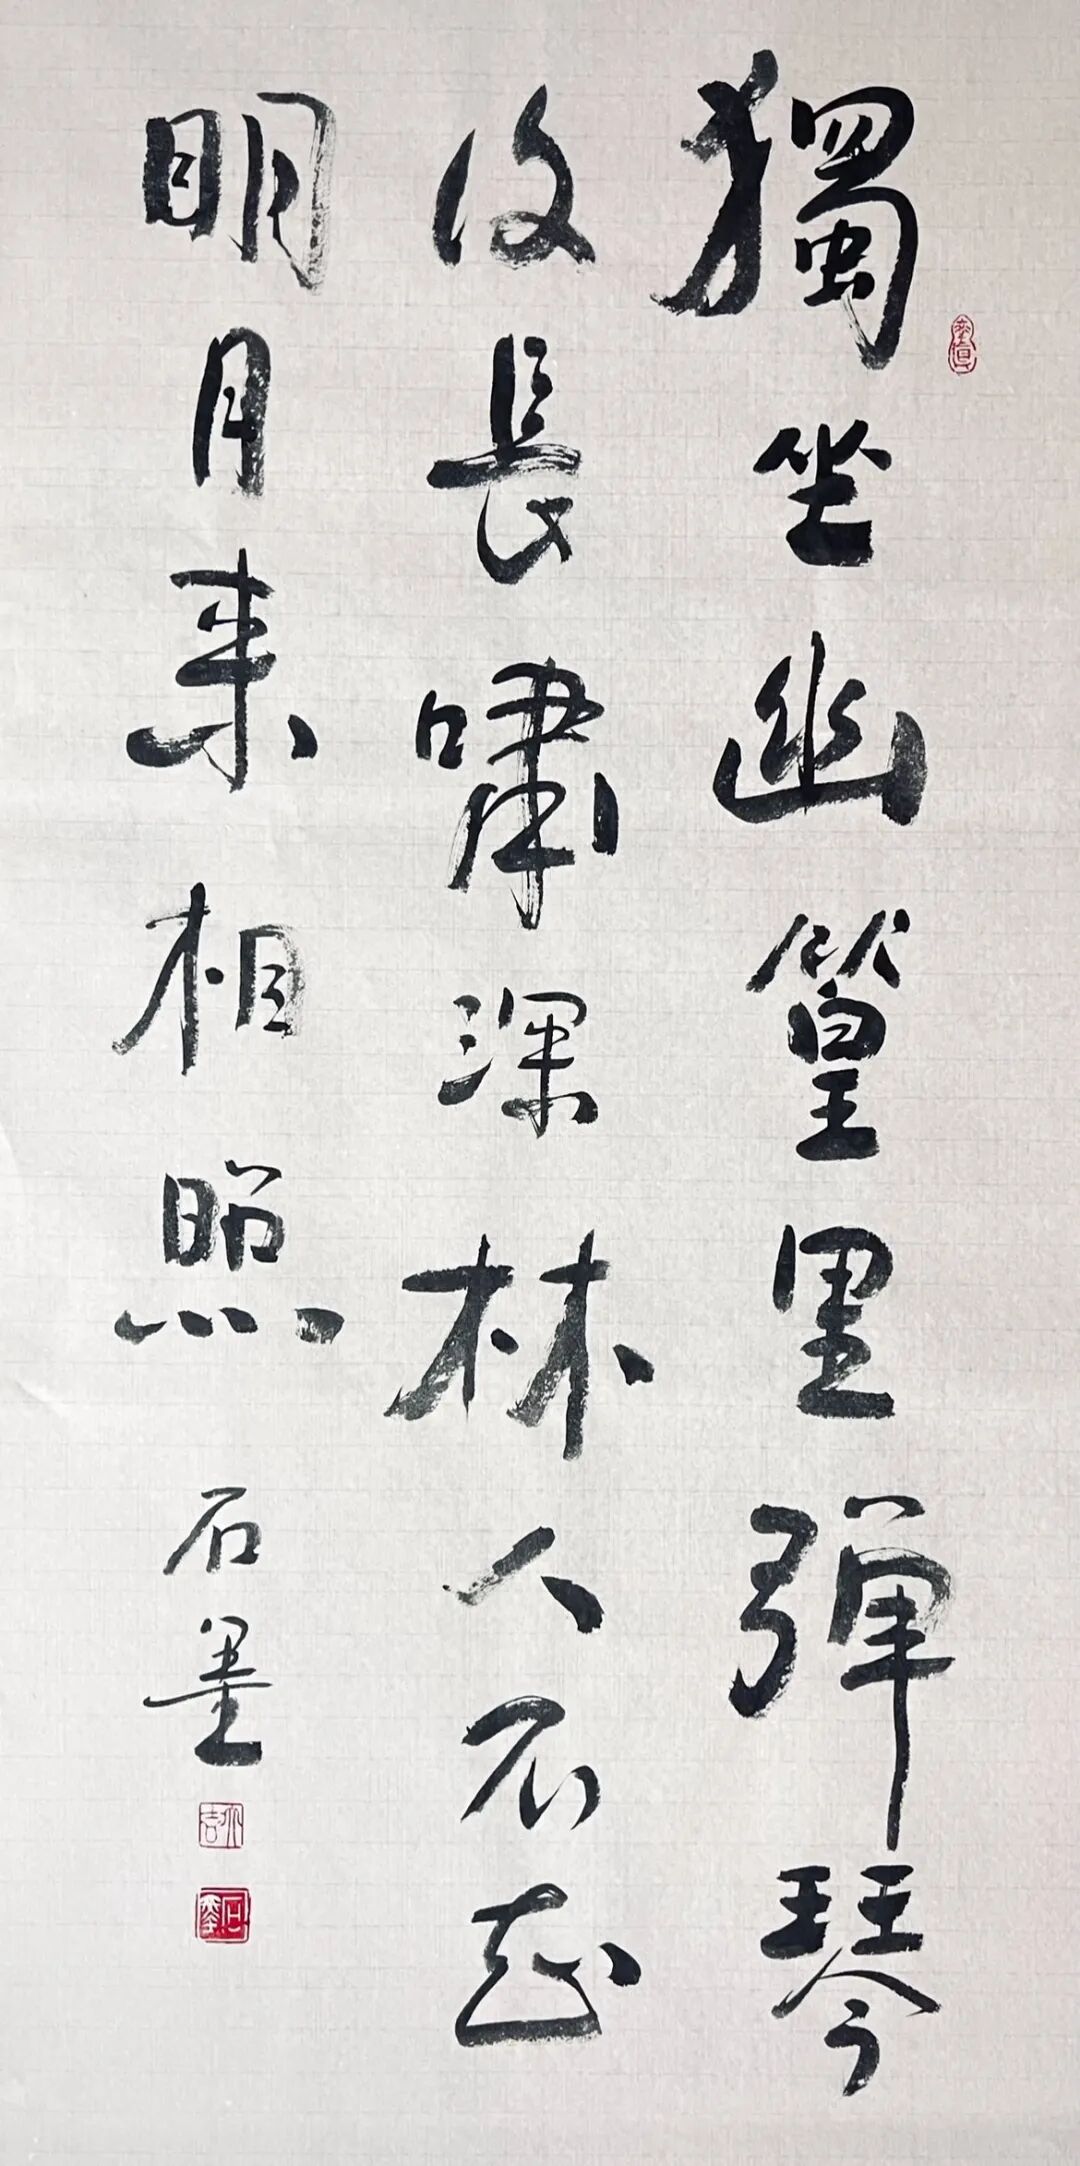 獨坐幽篁里彈琴
復長嘯深林人不知
明月来相照 石墨